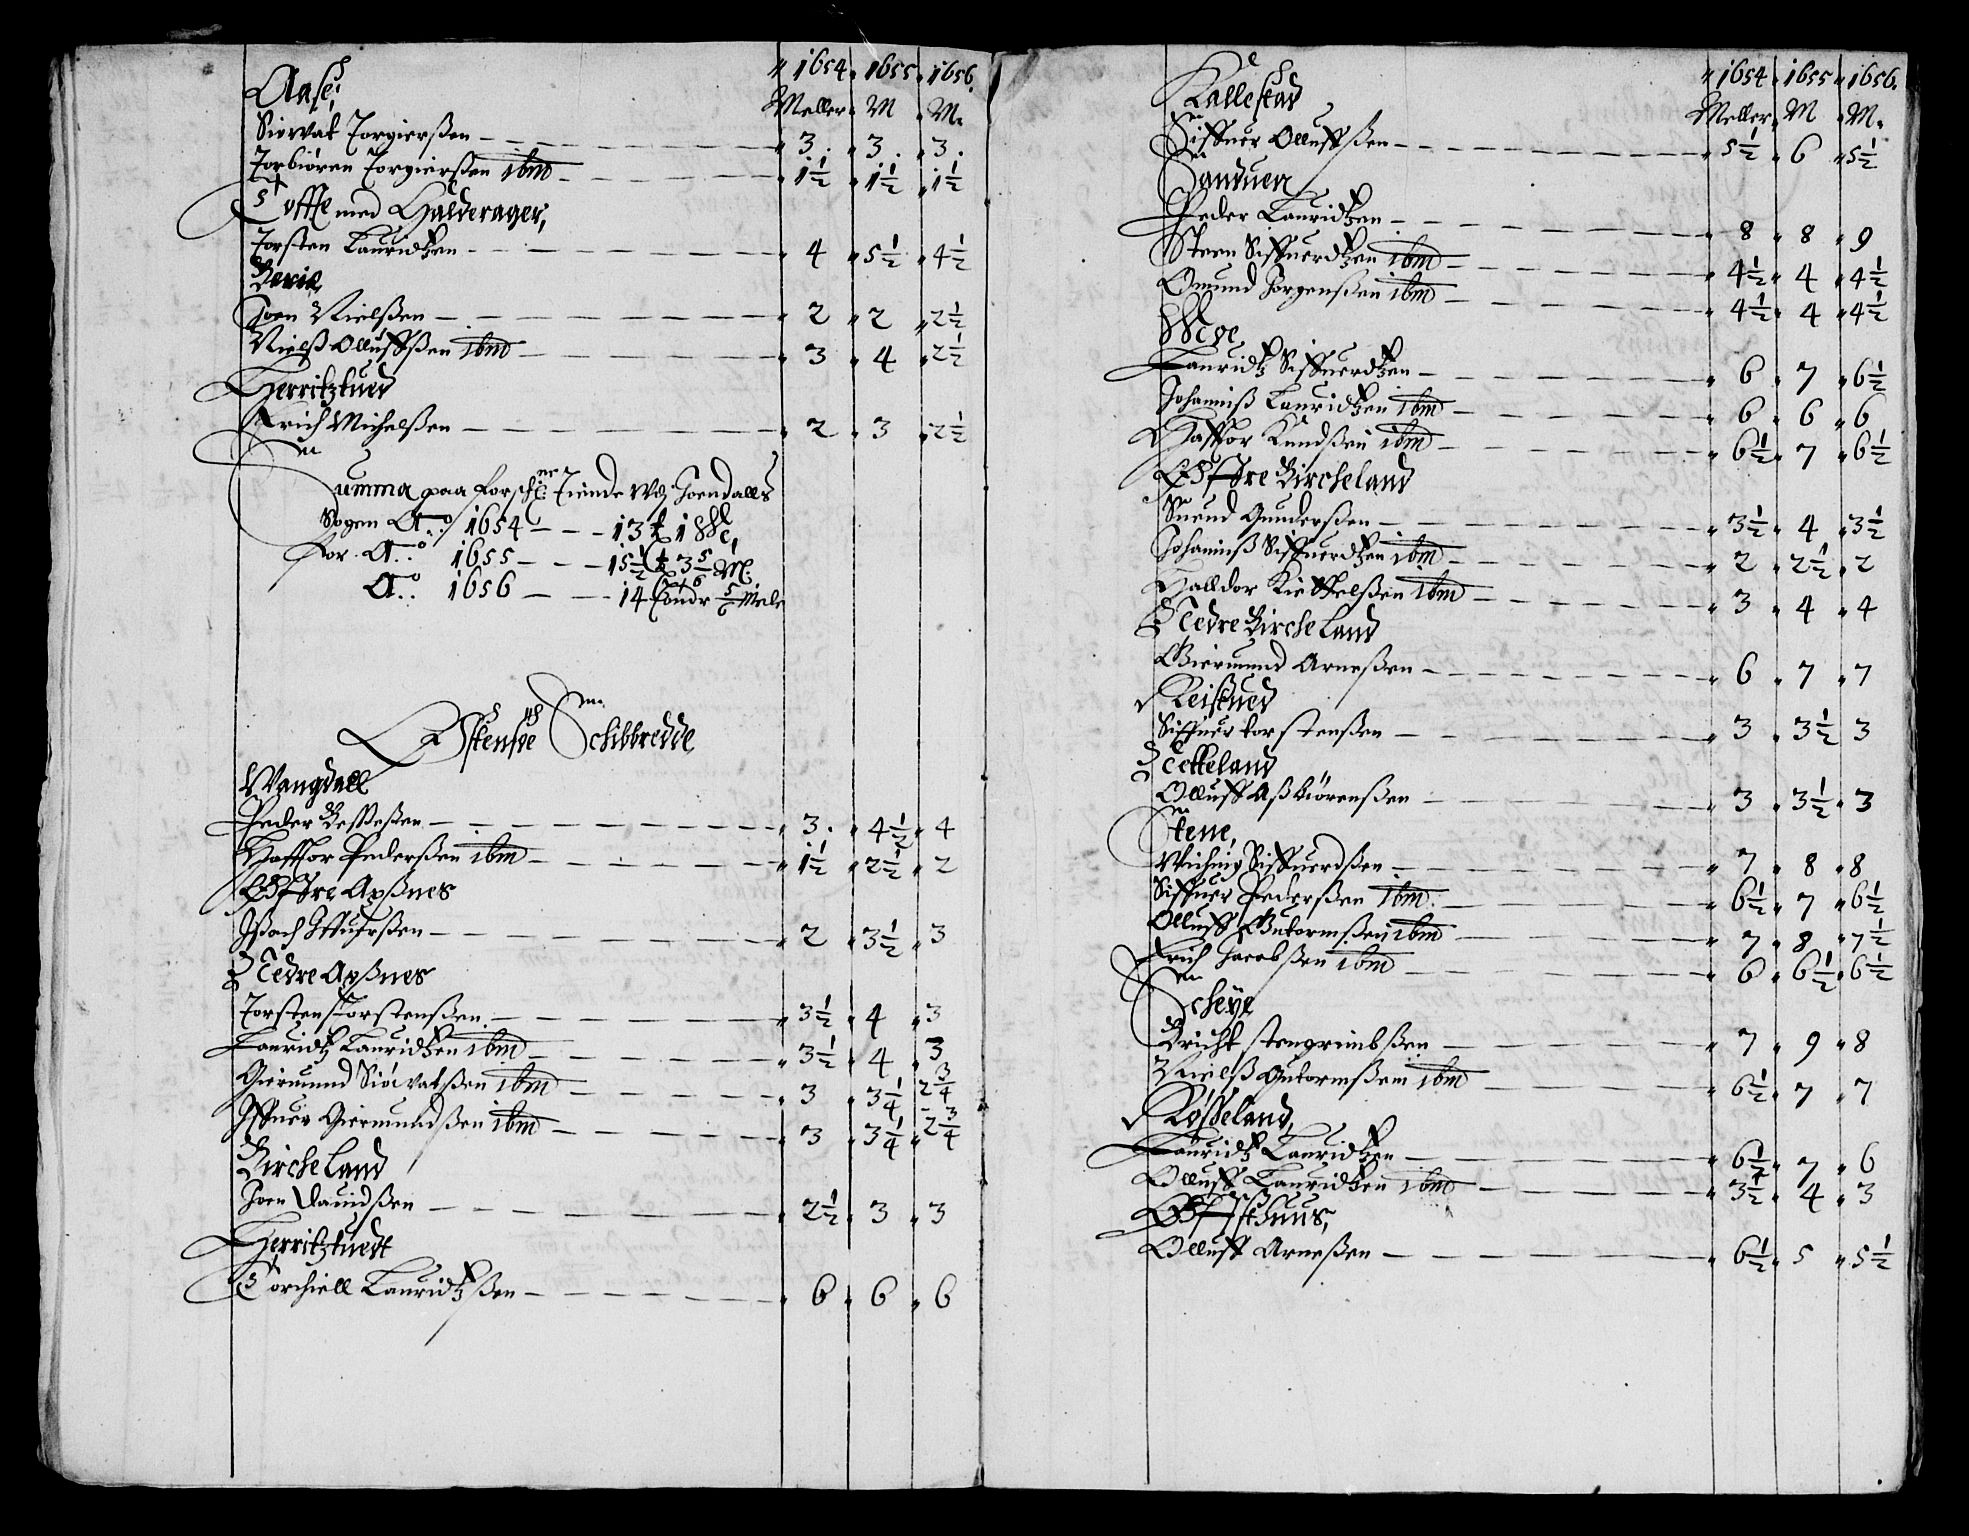 1654 1655 1656
Aase Meller M M.
Siovat Torgierßen 3 3 3
Torbiörn Torgierßen ibm 1½ 1½ 1½
Tofftte med Halderager,
Torsten Lauridtzen 4 5½ 4½
Berie
Joen Nielßen 2 2 2½
Nielß Olluffßen ibm 3 4 2½
Herritztued
Erich Michelßen 2 3 2½
Summa paa forschne Tiende Wdj Joendalls
Sogen Ao 1654 13 t 1 We,
for Ao 1655 15½ t 3 5/6 M:
Ao 1656 14 tondr 5/6 Mele
Ostensøe Schibbredde
Wangdall
Peder Besseßen 3 4½ 4
Haffuor Pederßen ibm 1½ 2½ 2
Øffre Axßnes
Ißach Iffuerßen 2 3½ 3
Nedre Axßnes
Torsten Torstenßen 3½ 4 3
Lauridtz Lauridtzen ibm 3½ 4 3
Giermund Siovatßen ibm 3 3¼ 2¾
Iffuer Giermundßen ibm 3 3¼ 2¾
Bircheland
Joen Dauidßen 2½ 3 3
Herritztuedt
Torchiell Lauridtzßen 6 6 6
1654 1655 1656
Kallestad Meller M M.
Siffuer Olluffßen 5½ 6 5½
Sanduen
Peder Lauridtzen 8 8 9
Steen Siffuerdtzen ibm 4½ 4 4½
Omund Jorgenßen ibm 4½ 4 4½
Wige
Lauridtz Siffuerdtzen 6 7 6½
Johanniß Lauridtzen ibm 6 6 6
Haffuor Knudßen ibm 6½ 7 6½
Øffre Bircheland
Suend Gunderßen 3½ 4 3½
Johanniß Siffuerdtzen ibm 2 2½ 2
Halldor Kiettelßen ibm 3 4 4
Nedre Bircheland
Giermund Arneßen 6 7 7
Reistued
Siffuer torstenßen 3 3½ 3
Tetteland
Olluff Aßbiörenßen 3 3½ 3
Stene
Wiching Siffuerdßen 7 8 8
Siffuer Pederßen ibm 6½ 7 6½
Olluff Gutormßen ibm 7 8 7½
Erich Jacobßen ibm 6 6½ 6½
Scheye
Bricht stengrimbßen 7 9 8
Nielß Gutormßen ibm 6½ 7 7
Røsseland,
Lauridtz Lauridtzen 6½ 7 6
Olluff Lauridtzen ibm 3½ 4 3
Øffsthuus,
Olluff Arneßen 6½ 5 5½